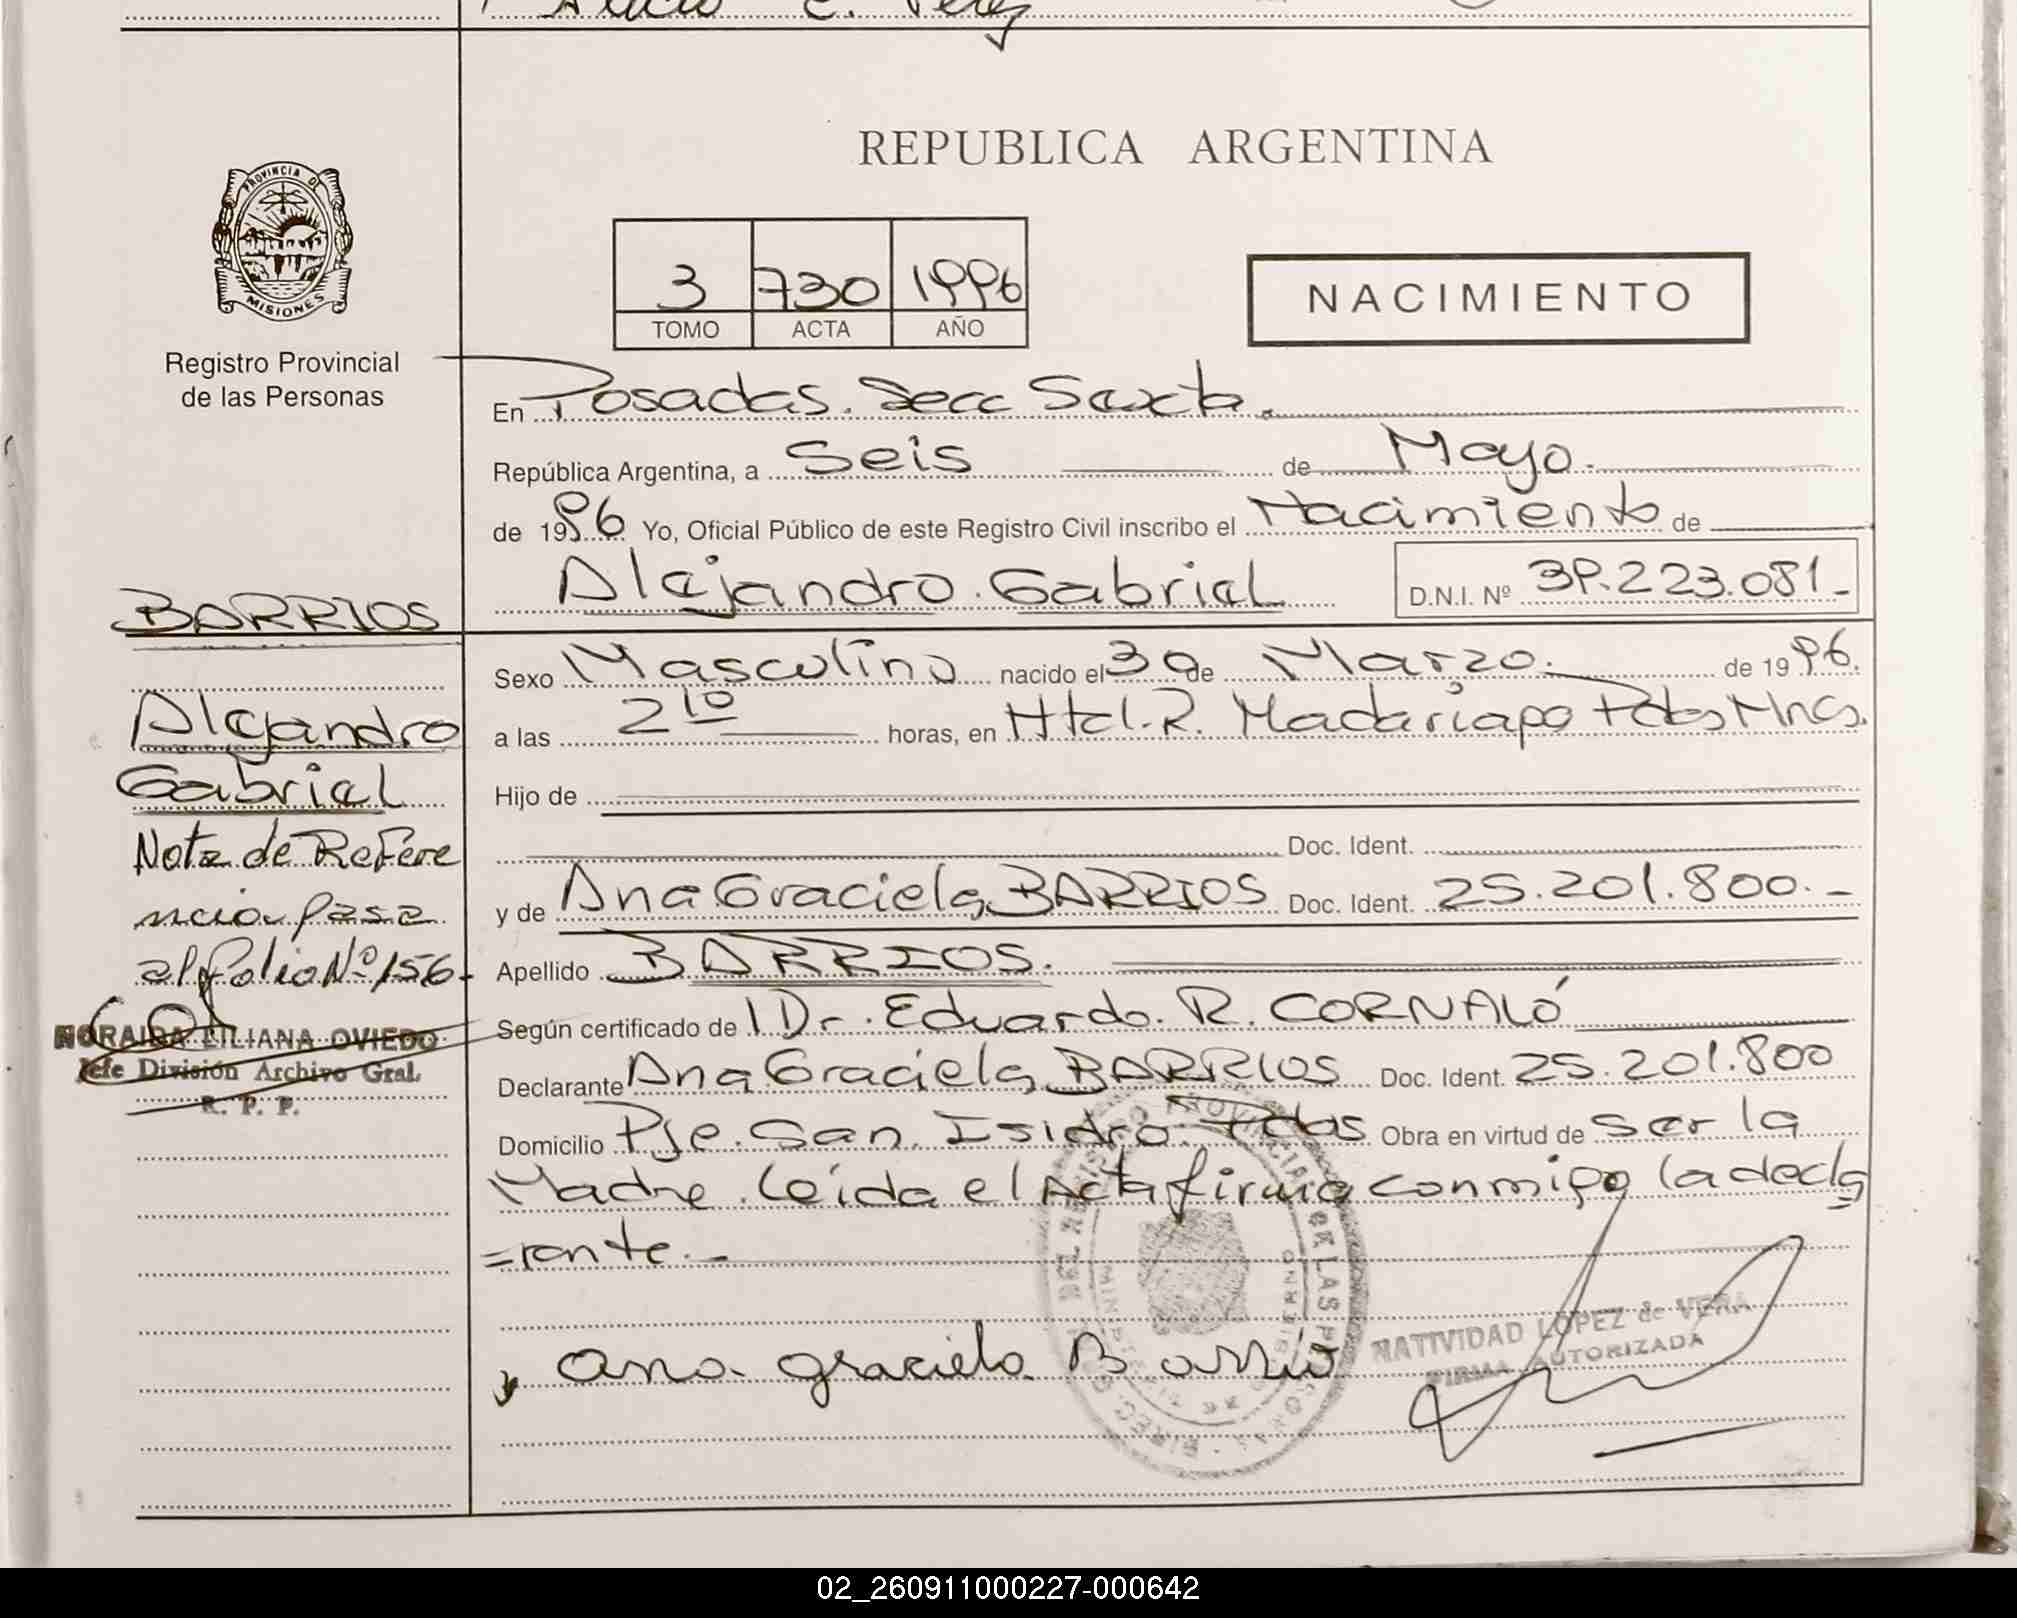 Alicia E. Perez
REPUBLICA ARGENTINA
PROVINCIA DE
MISIONES
Registro Provincial
de las Personas
3 730 1996
TOMO ACTA AÑO
NACIMIENTO
En Posadas. Secc Sexta.
República Argentina, a Seis de Mayo.
de 1996 Yo, Oficial Público de este Registro Civil inscribo el Nacimiento de
Alejandro. Gabriel D.N.I. Nº 39.223.081.-
BARRIOS
Alejandro
Gabriel
Nota de Refere
ncia pasa
al folio Nº 156-
NORAIDA LILIANA OVIEDO
Jefe División Archivo Gral.
R. P. P.
Sexo Masculino nacido el 30 de Marzo. de 1996.
a las 2 10 horas, en Htal. R. Madariaga Pdas Mnes.
Hijo de
Doc. Ident.
y de Ana Graciela BARRIOS Doc. Ident. 25.201.800.-
Apellido BARRIOS.
Según certificado de Dr. Eduardo. R. CORNALÓ
Declarante Ana Graciela BARRIOS Doc. Ident. 25.201.800
Domicilio Pje. San. Isidro Pdas Obra en virtud de ser la
Madre. Leída el Acta firma conmigo la decla
=rante.-
Ana graciela Barrio
NATIVIDAD LOPEZ de VERA
FIRMA AUTORIZADA
02_260911000227-000642